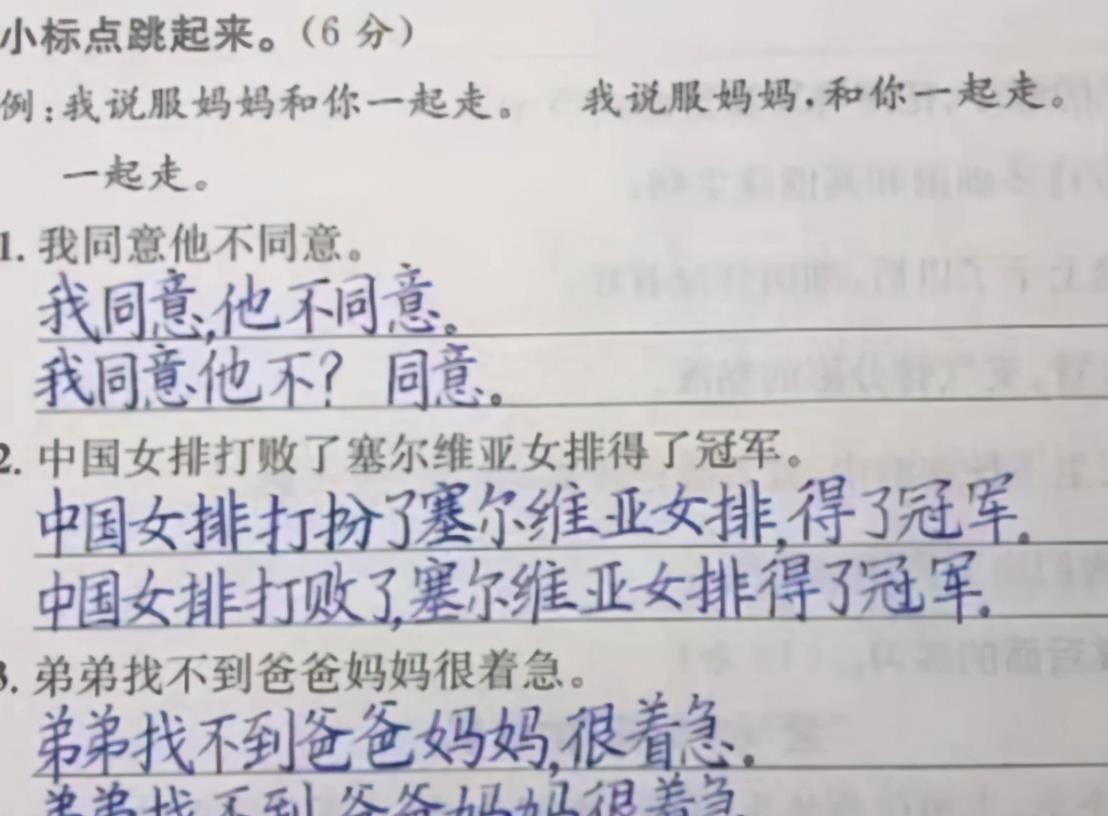 小标点跳起来。(6 分)
例:我说服妈妈和你一起走。 我说服妈妈,和你一起走。
一起走。
1. 我同意他不同意。
我同意,他不同意。
我同意他不? 同意。
2. 中国女排打败了塞尔维亚女排得了冠军。
中国女排打扮了塞尔维亚女排,得了冠军。
中国女排打败了,塞尔维亚女排得了冠军。
3. 弟弟找不到爸爸妈妈很着急。
弟弟找不到爸爸妈妈,很着急。
弟弟找不到爸爸妈妈很着急